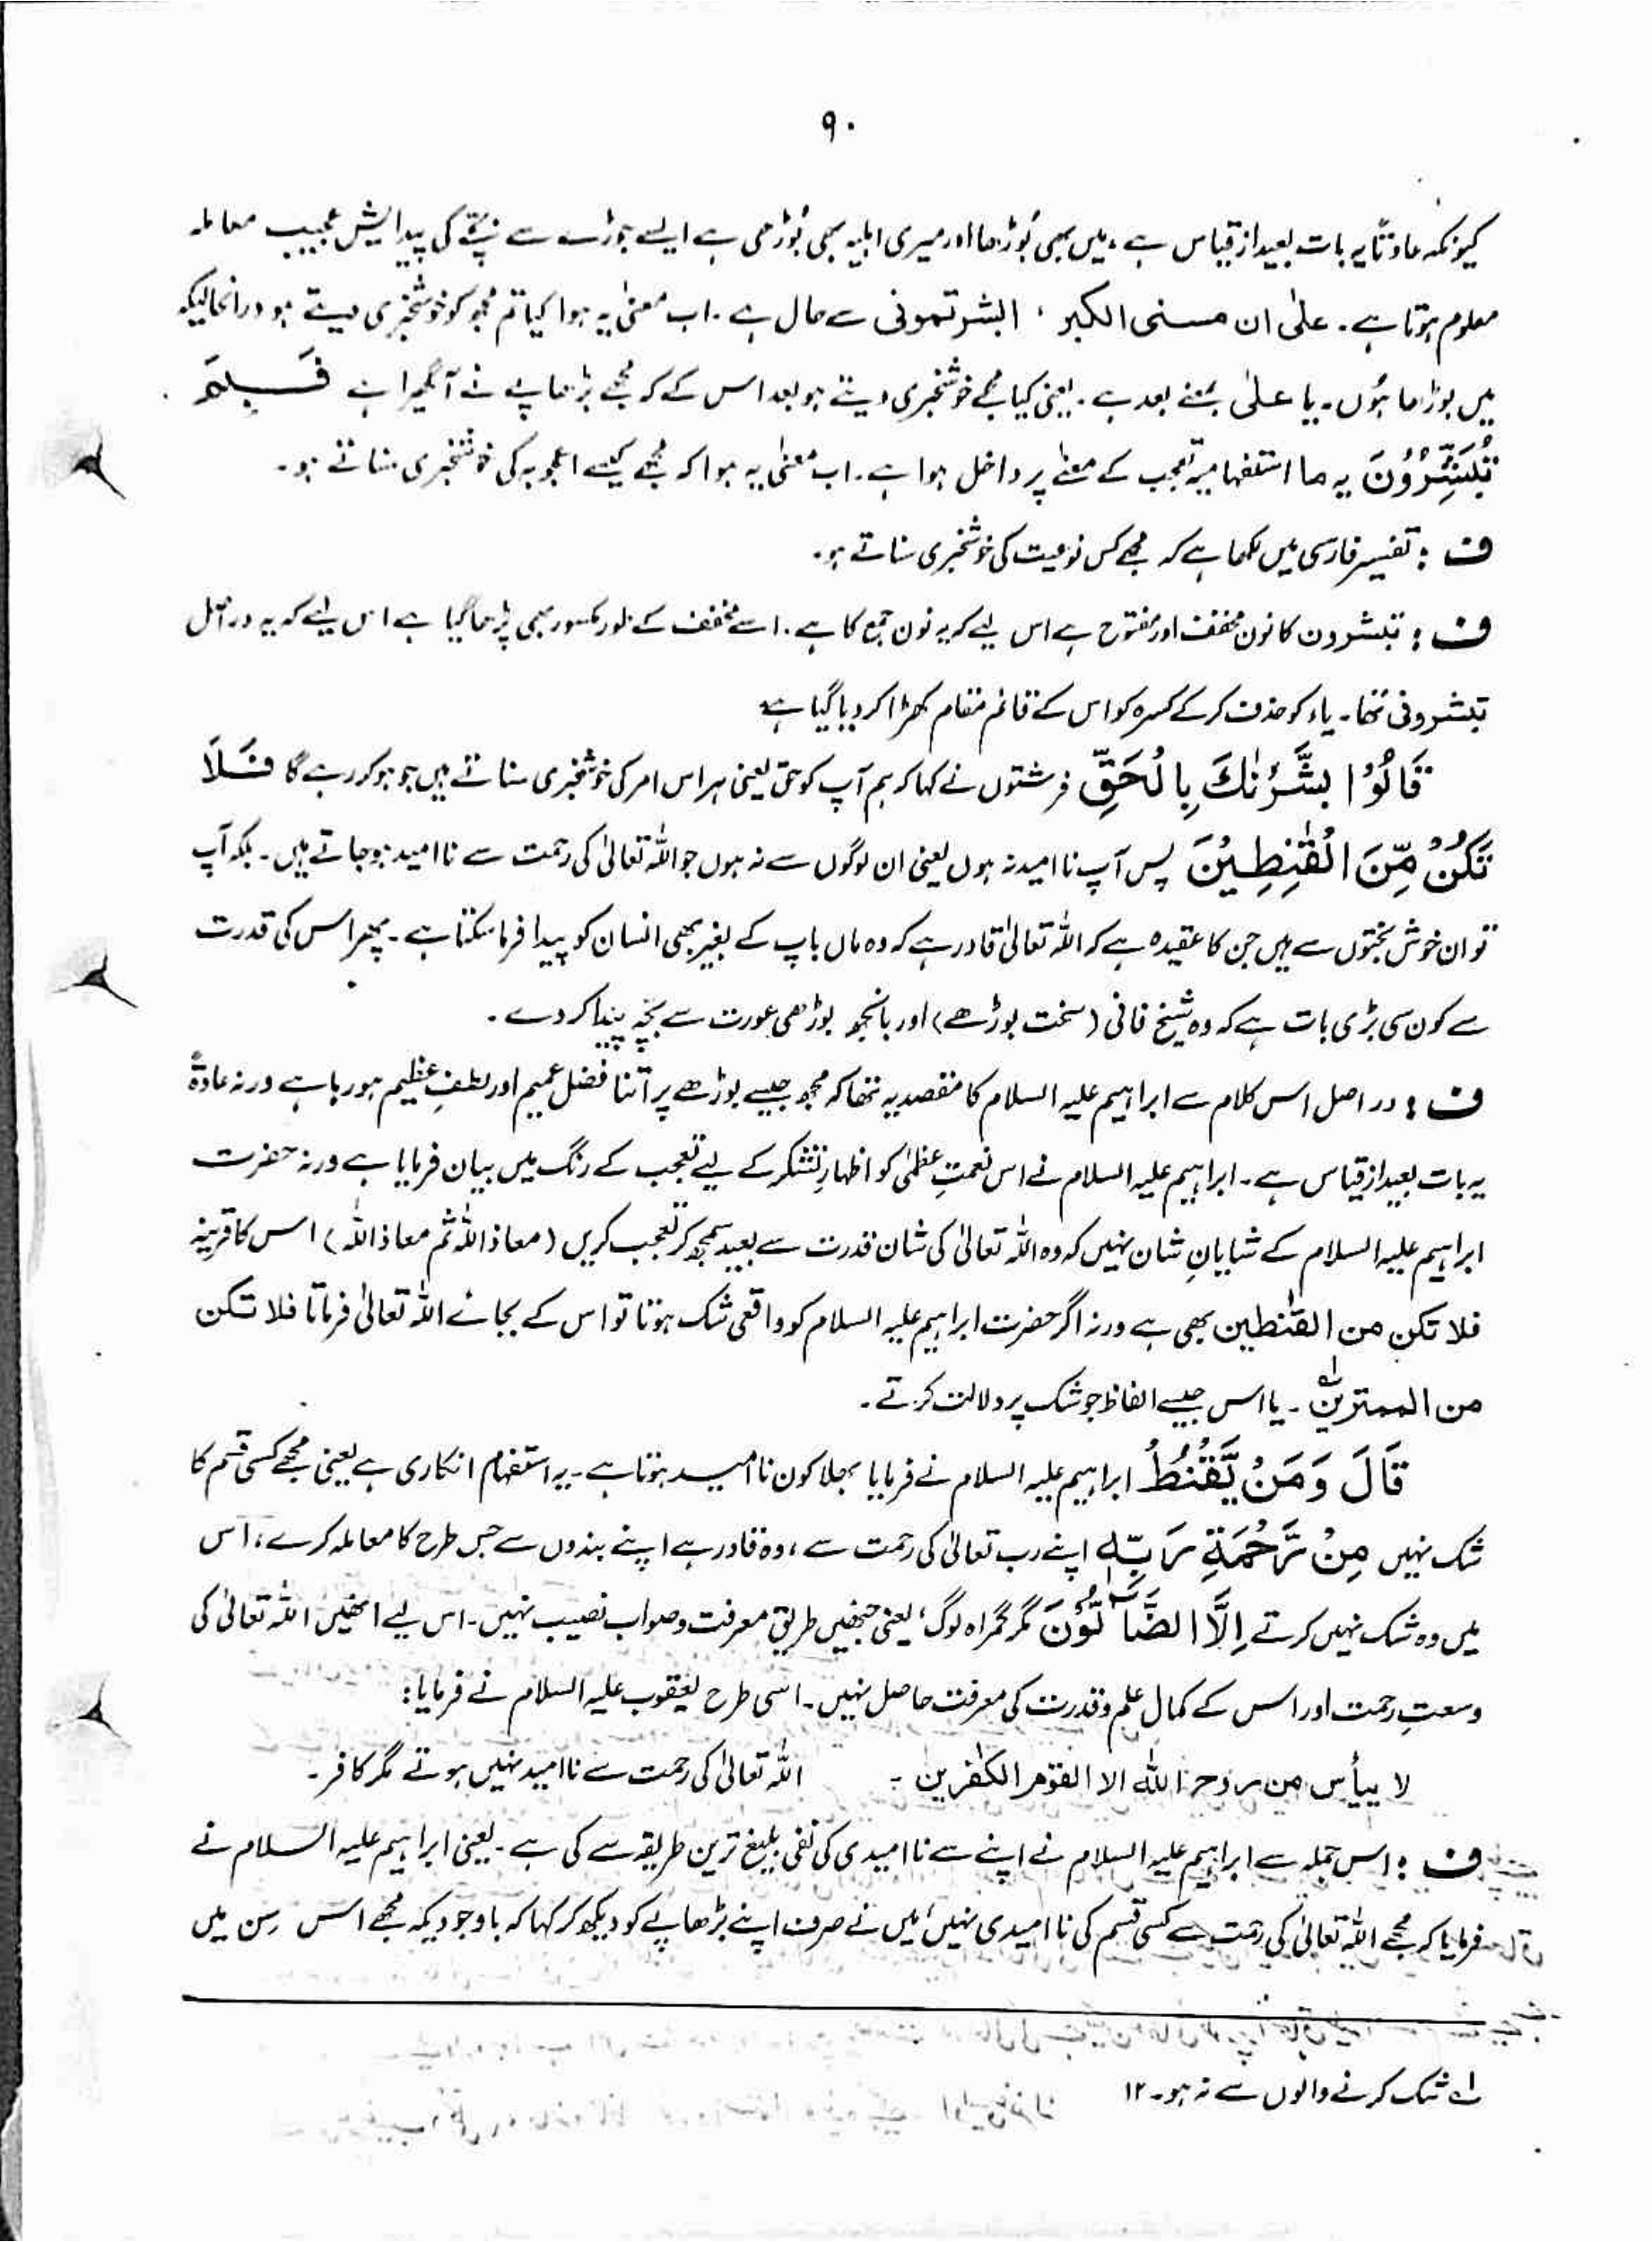 ۹۰
کیونکہ عادتاً یہ بات بعید از قیاس ہے، میں بھی بُوڑھا اور میری اہلیہ بھی بُوڑھی ہے ایسے جوڑے سے بچّے کی پیدایش عجیب معاملہ
معلوم ہوتا ہے۔ علیٰ ان مسنی الکبر ، ابشرتمونی سے حال ہے۔ اب معنیٰ یہ ہوا کیا تم مجھ کو خوشخبری دیتے ہو درانحالیکہ
میں بوڑھا ہُوں۔ یا علیٰ بمعنے بعد ہے۔ یعنی کیا مجھے خوشخبری دیتے ہو بعد اس کے کہ مجھے بڑھاپے نے آ گھیرا ہے فَبِمَ
تُبَشِّرُوْنَ یہ ما استفہامیہ تعجب کے معنے پر داخل ہوا ہے۔ اب معنیٰ یہ ہوا کہ مجھے کیسے اعجوبہ کی خوشخبری سناتے ہو۔
ف : تفسیر فارسی میں لکھا ہے کہ مجھے کس نوعیت کی خوشخبری سناتے ہو۔
ف : تبشرون کا نون مخفف اور مفتوح ہے اس لیے کہ یہ نون جمع کا ہے۔ اسے مخفف کے طور مکسور بھی پڑھا گیا ہے اس لیے کہ یہ در اصل
تبشرونی تھا۔ یاء کو حذف کر کے کسرہ کو اس کے قائم مقام کھڑا کر دیا گیا ہے
قَالُوْا بَشَّرْنٰكَ بِالْحَقِّ فرشتوں نے کہا کہ ہم آپ کو حق یعنی ہر اس امر کی خوشخبری سناتے ہیں جو ہو کر رہے گا فَلَا
تَكُنْ مِّنَ الْقٰنِطِيْنَ پس آپ نا امید نہ ہوں یعنی ان لوگوں سے نہ ہوں جو اللہ تعالیٰ کی رحمت سے نا امید ہو جاتے ہیں۔ بلکہ آپ
تو ان خوش بختوں سے ہیں جن کا عقیدہ ہے کہ اللہ تعالیٰ قادر ہے کہ وہ ماں باپ کے بغیر بھی انسان کو پیدا فرما سکتا ہے۔ پھر اس کی قدرت
سے کون سی بڑی بات ہے کہ وہ شیخ فانی (سخت بوڑھے) اور بانجھ بوڑھی عورت سے بچّہ پیدا کر دے۔
ف : در اصل اس کلام سے ابراہیم علیہ السلام کا مقصد یہ تھا کہ مجھ جیسے بوڑھے پر اتنا فضل عمیم اور لطفِ عظیم ہو رہا ہے ورنہ عادۃً
یہ بات بعید از قیاس ہے۔ ابراہیم علیہ السلام نے اس نعمتِ عظمیٰ کو اظہارِ تشکر کے لیے تعجب کے رنگ میں بیان فرمایا ہے ورنہ حضرت
ابراہیم علیہ السلام کے شایانِ شان نہیں کہ وہ اللہ تعالیٰ کی شان قدرت سے بعید سمجھ کر تعجب کریں (معاذ اللہ ثم معاذ اللہ) اس کا قرینہ
فلا تکن من القٰنطین بھی ہے ورنہ اگر حضرت ابراہیم علیہ السلام کو واقعی شک ہوتا تو اس کے بجائے اللہ تعالیٰ فرماتا فلا تکن
من الممترین۱؎۔ یا اس جیسے الفاظ جو شک پر دلالت کرتے۔
قَالَ وَمَنْ يَّقْنَطُ ابراہیم علیہ السلام نے فرمایا بھلا کون نا امید ہوتا ہے۔ یہ استفہام انکاری ہے یعنی مجھے کسی قسم کا
شک نہیں مِنْ رَّحْمَةِ رَبِّهٖ اپنے رب تعالیٰ کی رحمت سے، وہ قادر ہے اپنے بندوں سے جس طرح کا معاملہ کرے، اس
میں وہ شک نہیں کرتے اِلَّا الضَّآلُّوْنَ مگر گمراہ لوگ، یعنی جنھیں طریق معرفت و صواب نصیب نہیں۔ اس لیے انھیں اللہ تعالیٰ کی
وسعتِ رحمت اور اس کے کمال علم و قدرت کی معرفت حاصل نہیں۔ اسی طرح یعقوب علیہ السلام نے فرمایا:
لا ییأس من روح اللہ الا القوم الکٰفرین۔ اللہ تعالیٰ کی رحمت سے ناامید نہیں ہوتے مگر کافر۔
ف : اس جملہ سے ابراہیم علیہ السلام نے اپنے سے نا امیدی کی نفی بلیغ ترین طریقہ سے کی ہے۔ یعنی ابراہیم علیہ السلام نے
فرمایا کہ مجھے اللہ تعالیٰ کی رحمت سے کسی قسم کی نا امیدی نہیں، میں نے صرف اپنے بڑھاپے کو دیکھ کر کہا کہ باوجودیکہ مجھے اس سن میں
۱؎ شک کرنے والوں سے نہ ہو۔ ۱۲